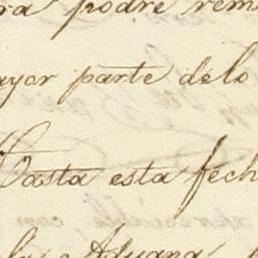 ra podré rem
ayor parte delo
Hasta esta fech
la Aduana